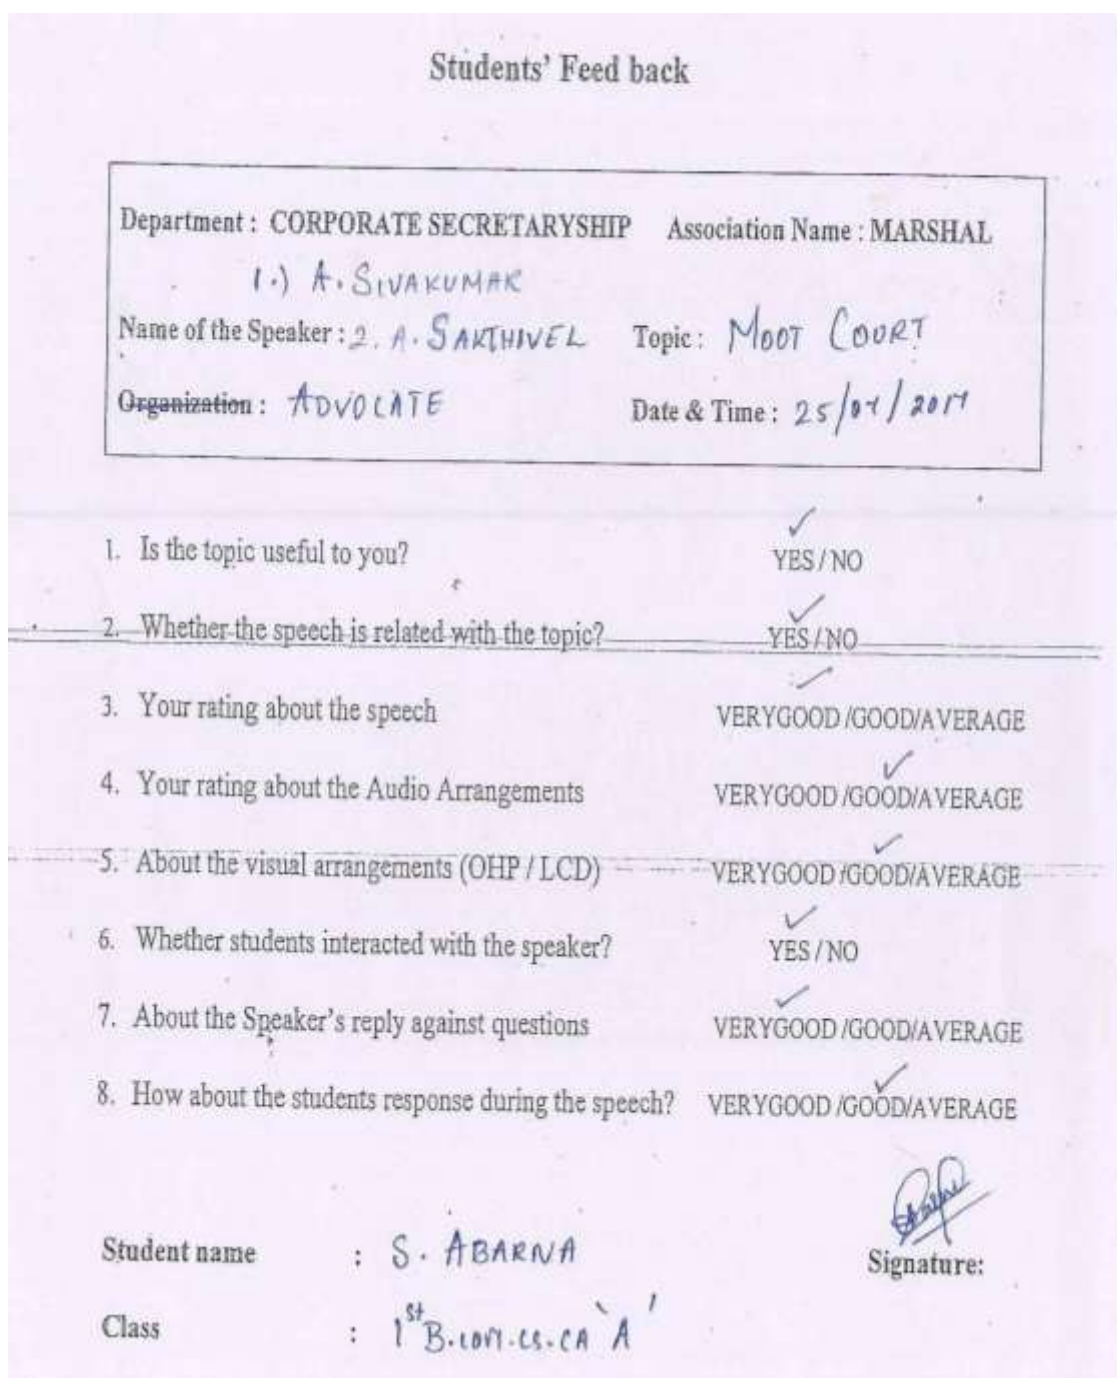 Students' Feed back
Department : CORPORATE SECRETARYSHIP Association Name : MARSHAL
1.) A. SIVAKUMAR
Name of the Speaker : 2. A. SAKTHIVEL Topic : MOOT COURT
Organization : ADVOCATE Date & Time :
1. Is the topic useful to you? YES / NO
2. Whether the speech is related with the topic? YES / NO
3. Your rating about the speech VERYGOOD /GOOD/AVERAGE
4. Your rating about the Audio Arrangements VERYGOOD /GOOD/AVERAGE
5. About the visual arrangements (OHP / LCD) VERYGOOD /GOOD/AVERAGE
6. Whether students interacted with the speaker? YES / NO
7. About the Speaker's reply against questions VERYGOOD /GOOD/AVERAGE
8. How about the students response during the speech? VERYGOOD /GOOD/AVERAGE
Student name : S. ABARNA Signature:
Class : 1st B.com.cs.CA 'A'